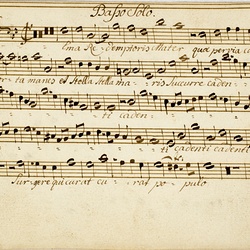 Basso Solo.
lma Re demptoris Mater quæ pervia cæ
or ta manes et Stella Stella ma ris Succurre caden
ti caden
ti cadenti cadenti
Sur gere qui curat cu rat po pulo